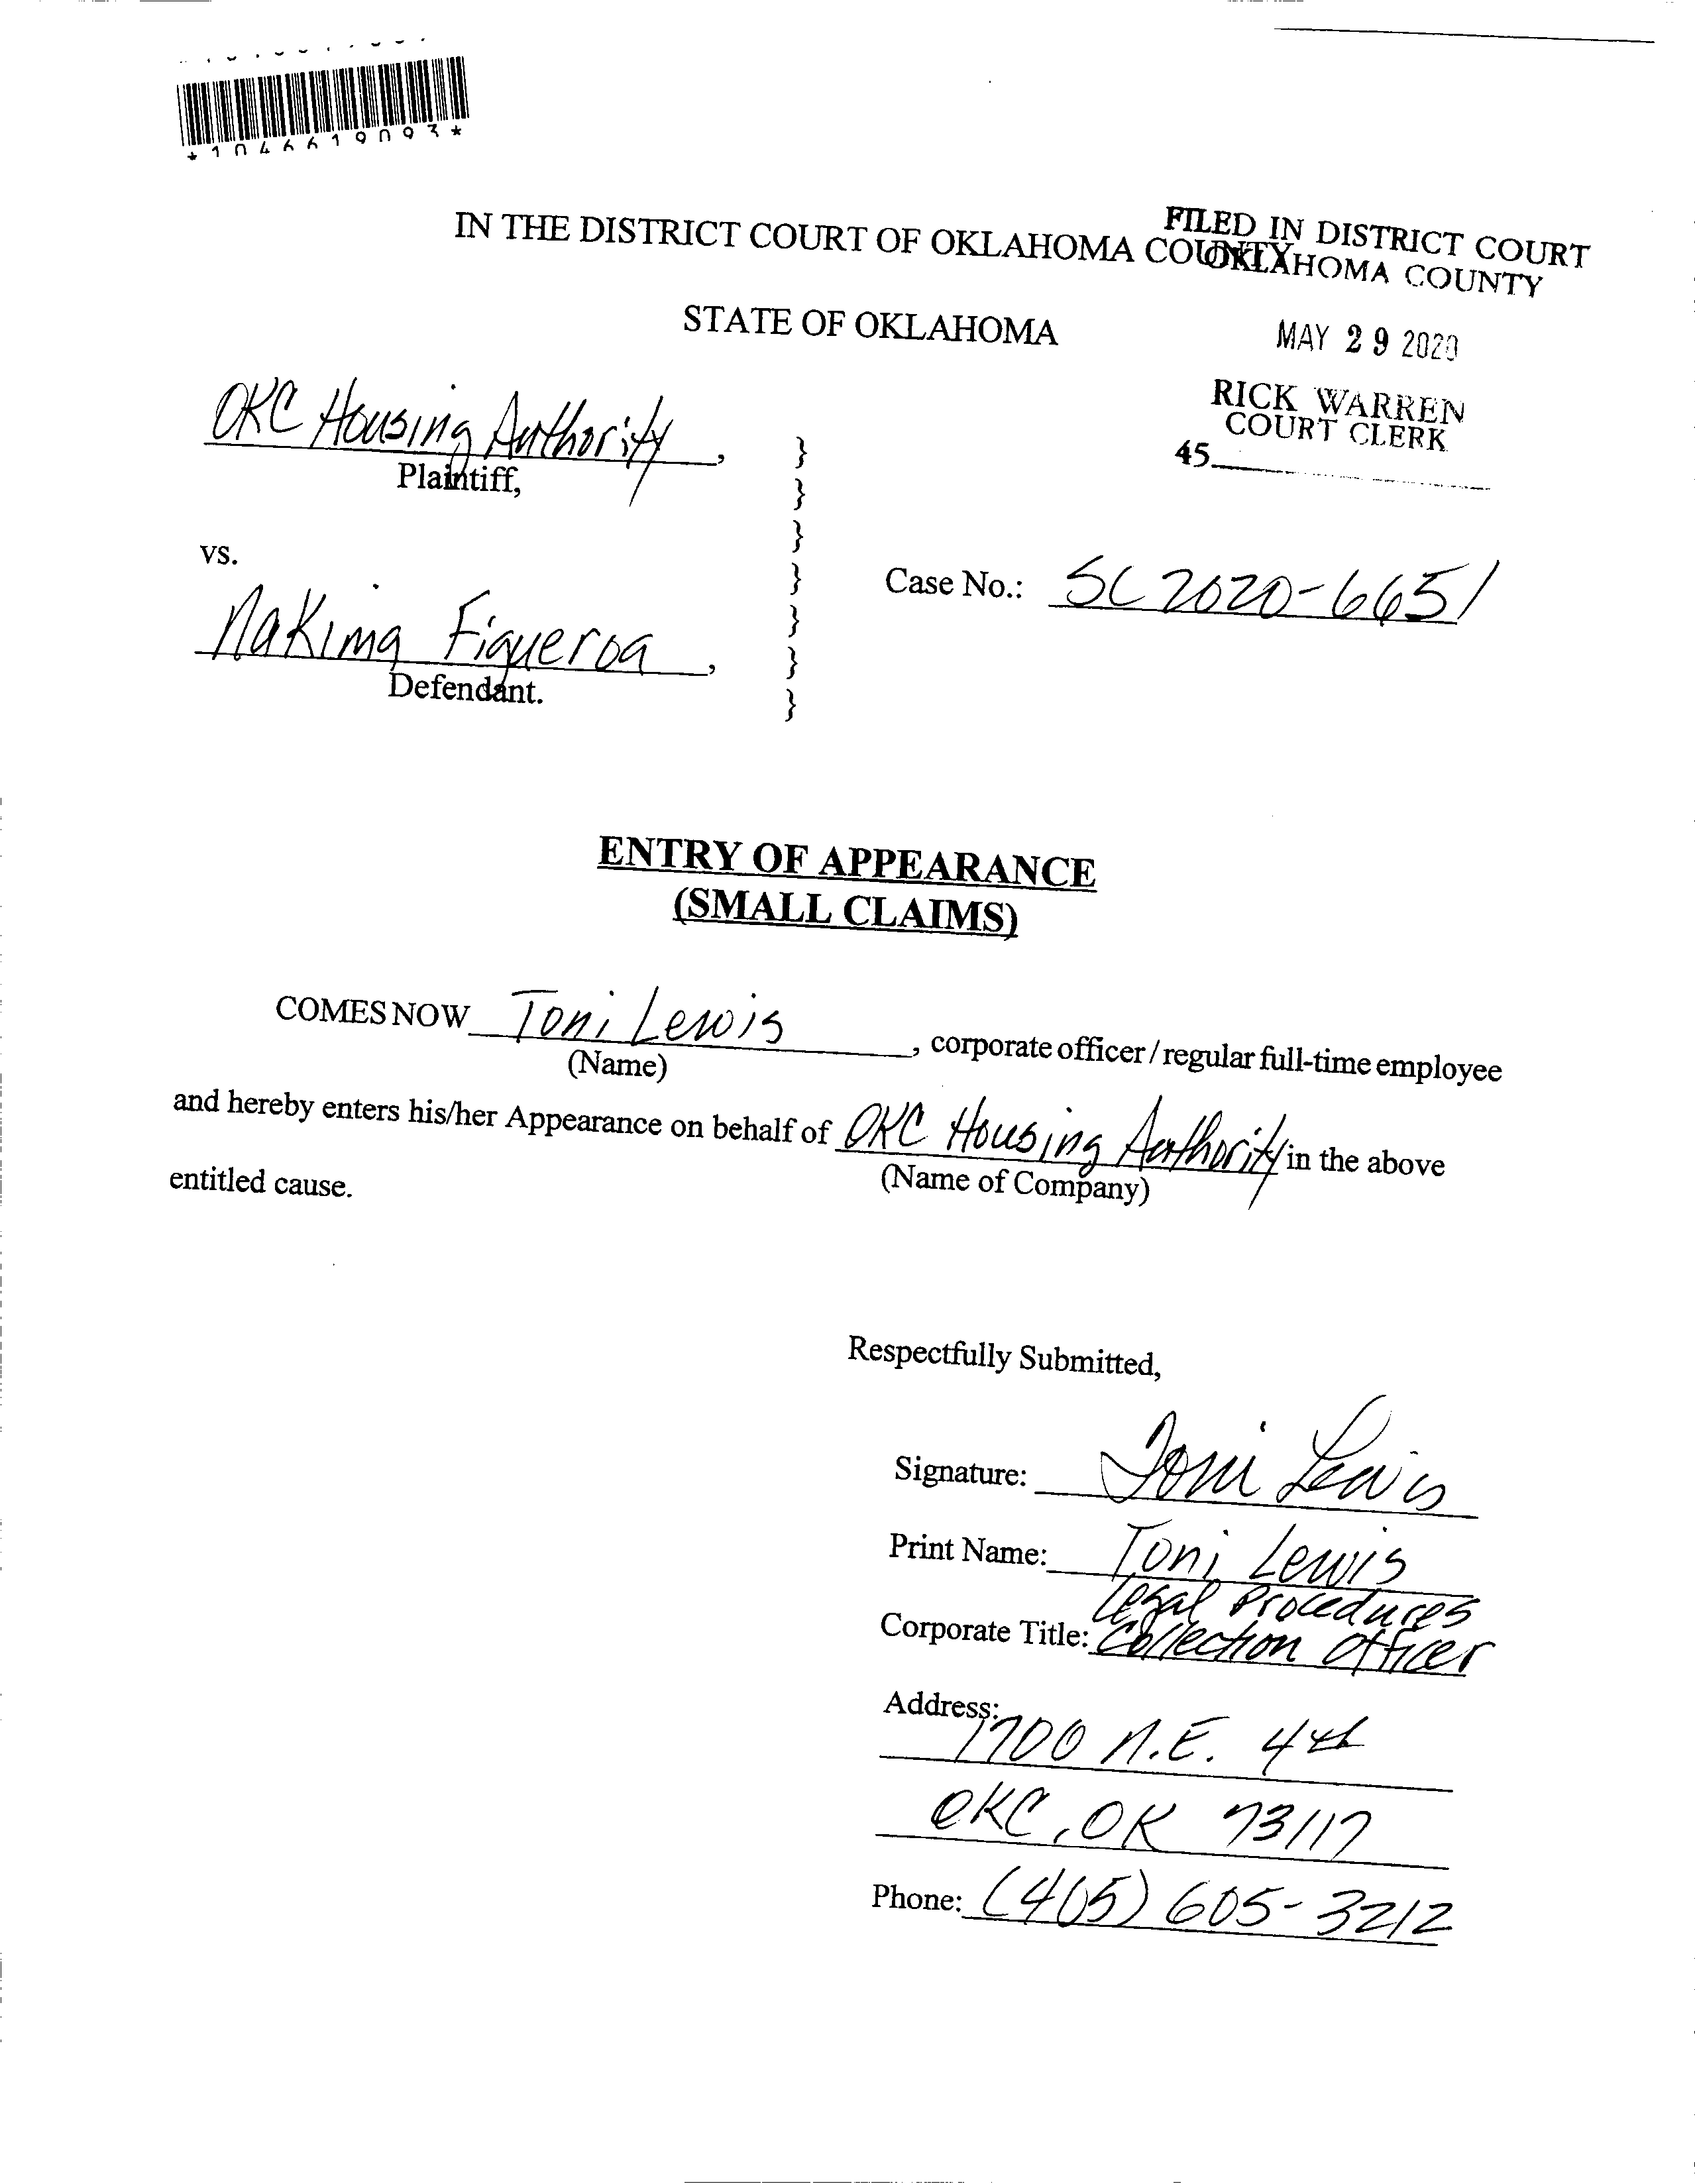 *1046619093*
FILED IN DISTRICT COURT
OKLAHOMA COUNTY
IN THE DISTRICT COURT OF OKLAHOMA COUNTY
STATE OF OKLAHOMA
MAY 29 2020
RICK WARREN
COURT CLERK
45
OKC Housing Authority,
Plaintiff,
vs.
Case No.: SC 2020-6651
Nakima Figueroa,
Defendant.
}
}
}
}
}
}
}
ENTRY OF APPEARANCE
(SMALL CLAIMS)
COMES NOW Toni Lewis, corporate officer / regular full-time employee
(Name)
and hereby enters his/her Appearance on behalf of OKC Housing Authority in the above
(Name of Company)
entitled cause.
Respectfully Submitted,
Signature: Toni Lewis
Print Name: Toni Lewis
Legal Procedures
Corporate Title: Collection Officer
Address:
1700 N.E. 4th
OKC, OK 73117
Phone: (405) 605-3212